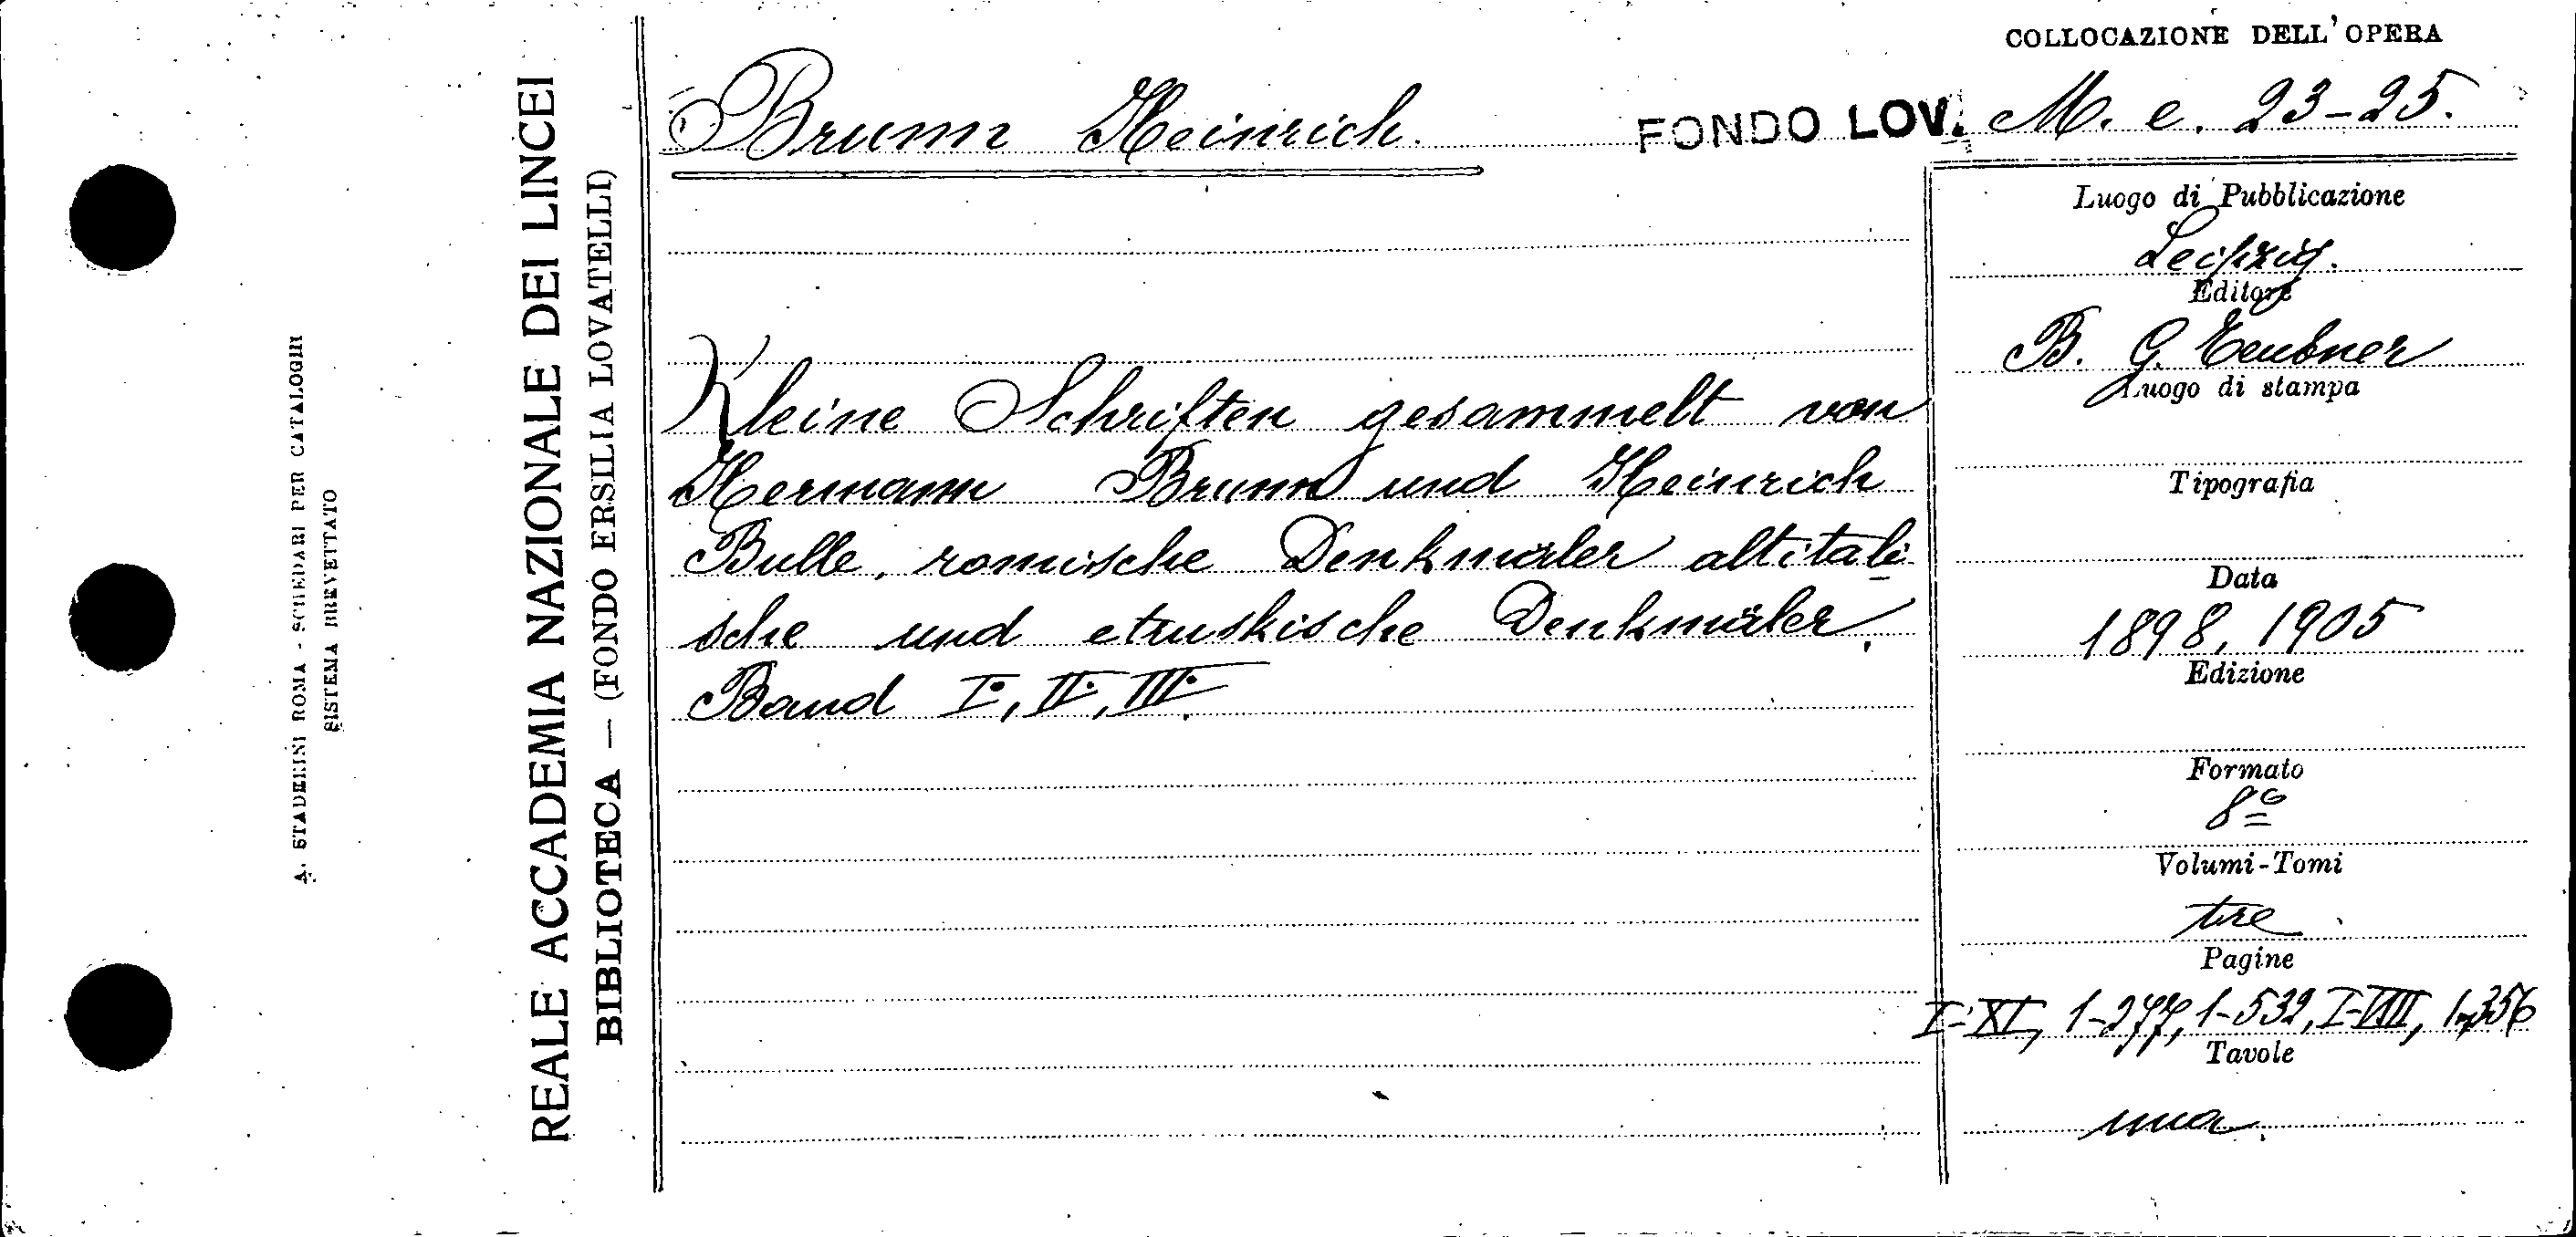 A. STADERINI ROMA - SCHEDARI PER CATALOGHI
SISTEMA BREVETTATO
REALE ACCADEMIA NAZIONALE DEI LINCEI
BIBLIOTECA — (FONDO ERSILIA LOVATELLI)
COLLOCAZIONE DELL'OPERA
Brunn Heinrich.
FONDO LOV. M. e. 23-25.
Kleine Schriften gesammelt von
Hermann Brunn und Heinrich
Bulle, romische Denkmäler altitali
sche und etruskische Denkmäler.
Band I°, II°, III°.
Luogo di Pubblicazione
Leipzig.
Editore
B. G. Teubner
Luogo di stampa
Tipografia
Data
1898, 1905
Edizione
Formato
8°
Volumi-Tomi
tre
Pagine
I-XI, 1-277, 1-532, I-VIII, 1-356
Tavole
una.